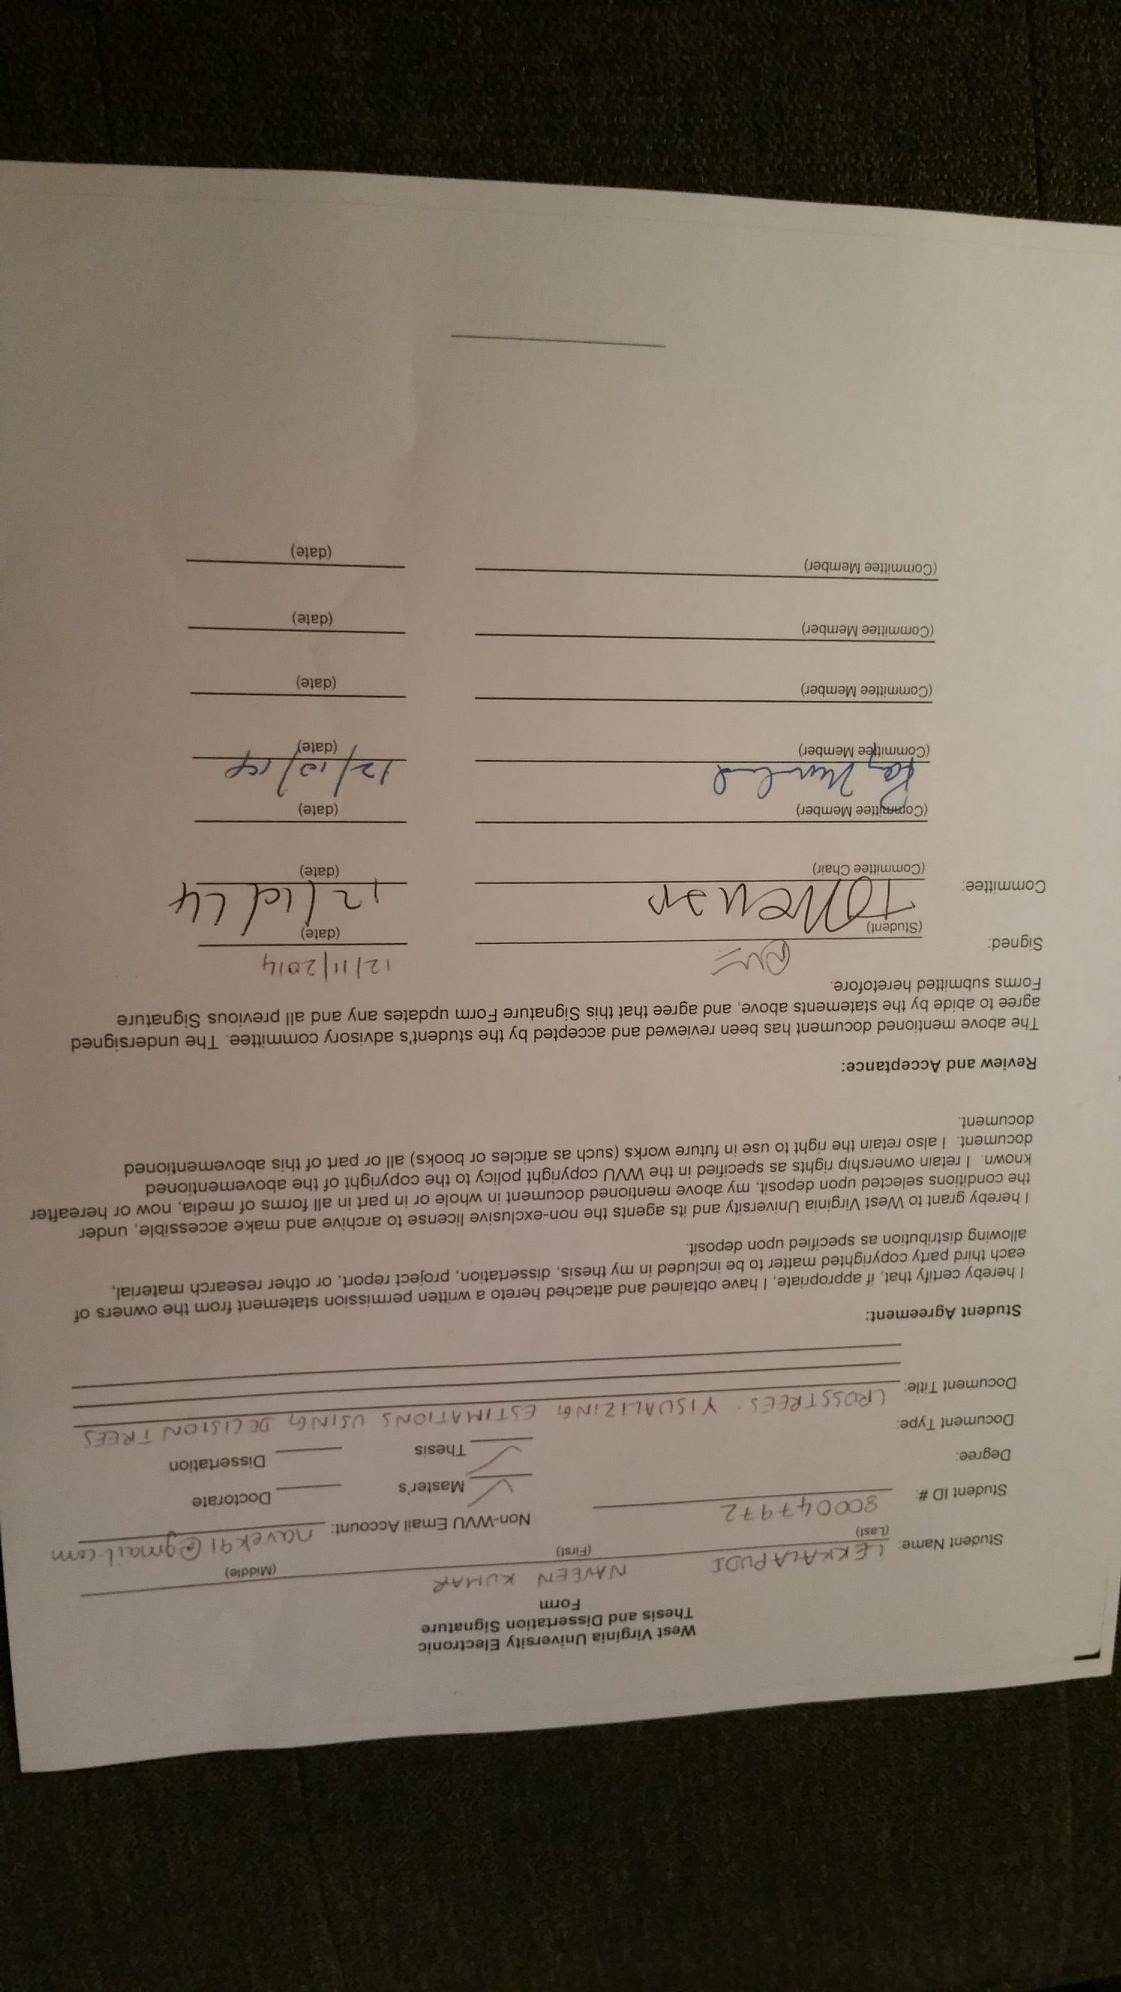 West Virginia University Electronic
Thesis and Dissertation Signature
Form
Student Name: LEKKALAPUDI NAVEEN KUMAR
(Last) (First) (Middle)
Student ID #: 800047972 Non-WVU Email Account: navek91@gmail.com
Degree: Master's Doctorate
Document Type: Thesis Dissertation
Document Title: CROSSTREES: VISUALIZING ESTIMATIONS USING DECISION TREES
Student Agreement:
I hereby certify that, if appropriate, I have obtained and attached hereto a written permission statement from the owners of
each third party copyrighted matter to be included in my thesis, dissertation, project report, or other research material,
allowing distribution as specified upon deposit.
I hereby grant to West Virginia University and its agents the non-exclusive license to archive and make accessible, under
the conditions selected upon deposit, my above mentioned document in whole or in part in all forms of media, now or hereafter
known. I retain ownership rights as specified in the WVU copyright policy to the copyright of the abovementioned
document. I also retain the right to use in future works (such as articles or books) all or part of this abovementioned
document.
Review and Acceptance:
The above mentioned document has been reviewed and accepted by the student's advisory committee. The undersigned
agree to abide by the statements above, and agree that this Signature Form updates any and all previous Signature
Forms submitted heretofore.
Signed: 12/11/2014
(Student) (date)
Committee: 12/10/14
(Committee Chair) (date)
(Committee Member) (date)
12/10/14
(Committee Member) (date)
(Committee Member) (date)
(Committee Member) (date)
(Committee Member) (date)